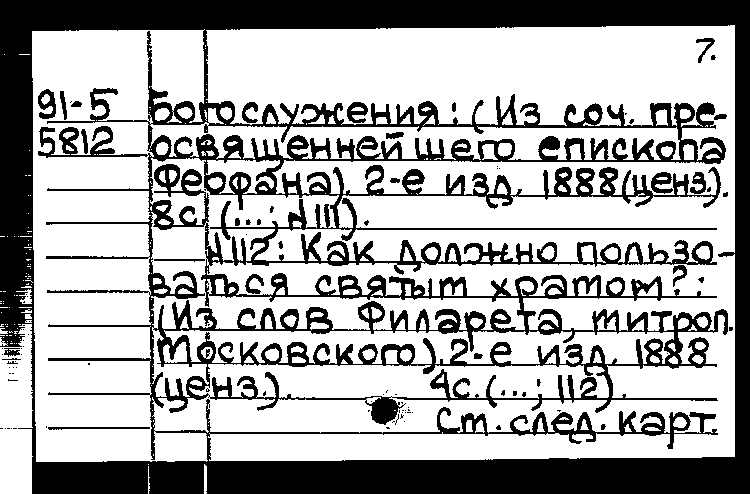 7.
91-5 богослужения: (Из соч. пре-
5812 освященнейшего епископа
Феофана). 2-е изд. 1888(ценз.).
8с. (...; №111).
№112: Как должно пользо-
ваться святым храмом?:
(Из слов Филарета, митроп.
Московского). 2-е изд. 1888
(ценз.). 4с. (...; 112).
См. след. карт.